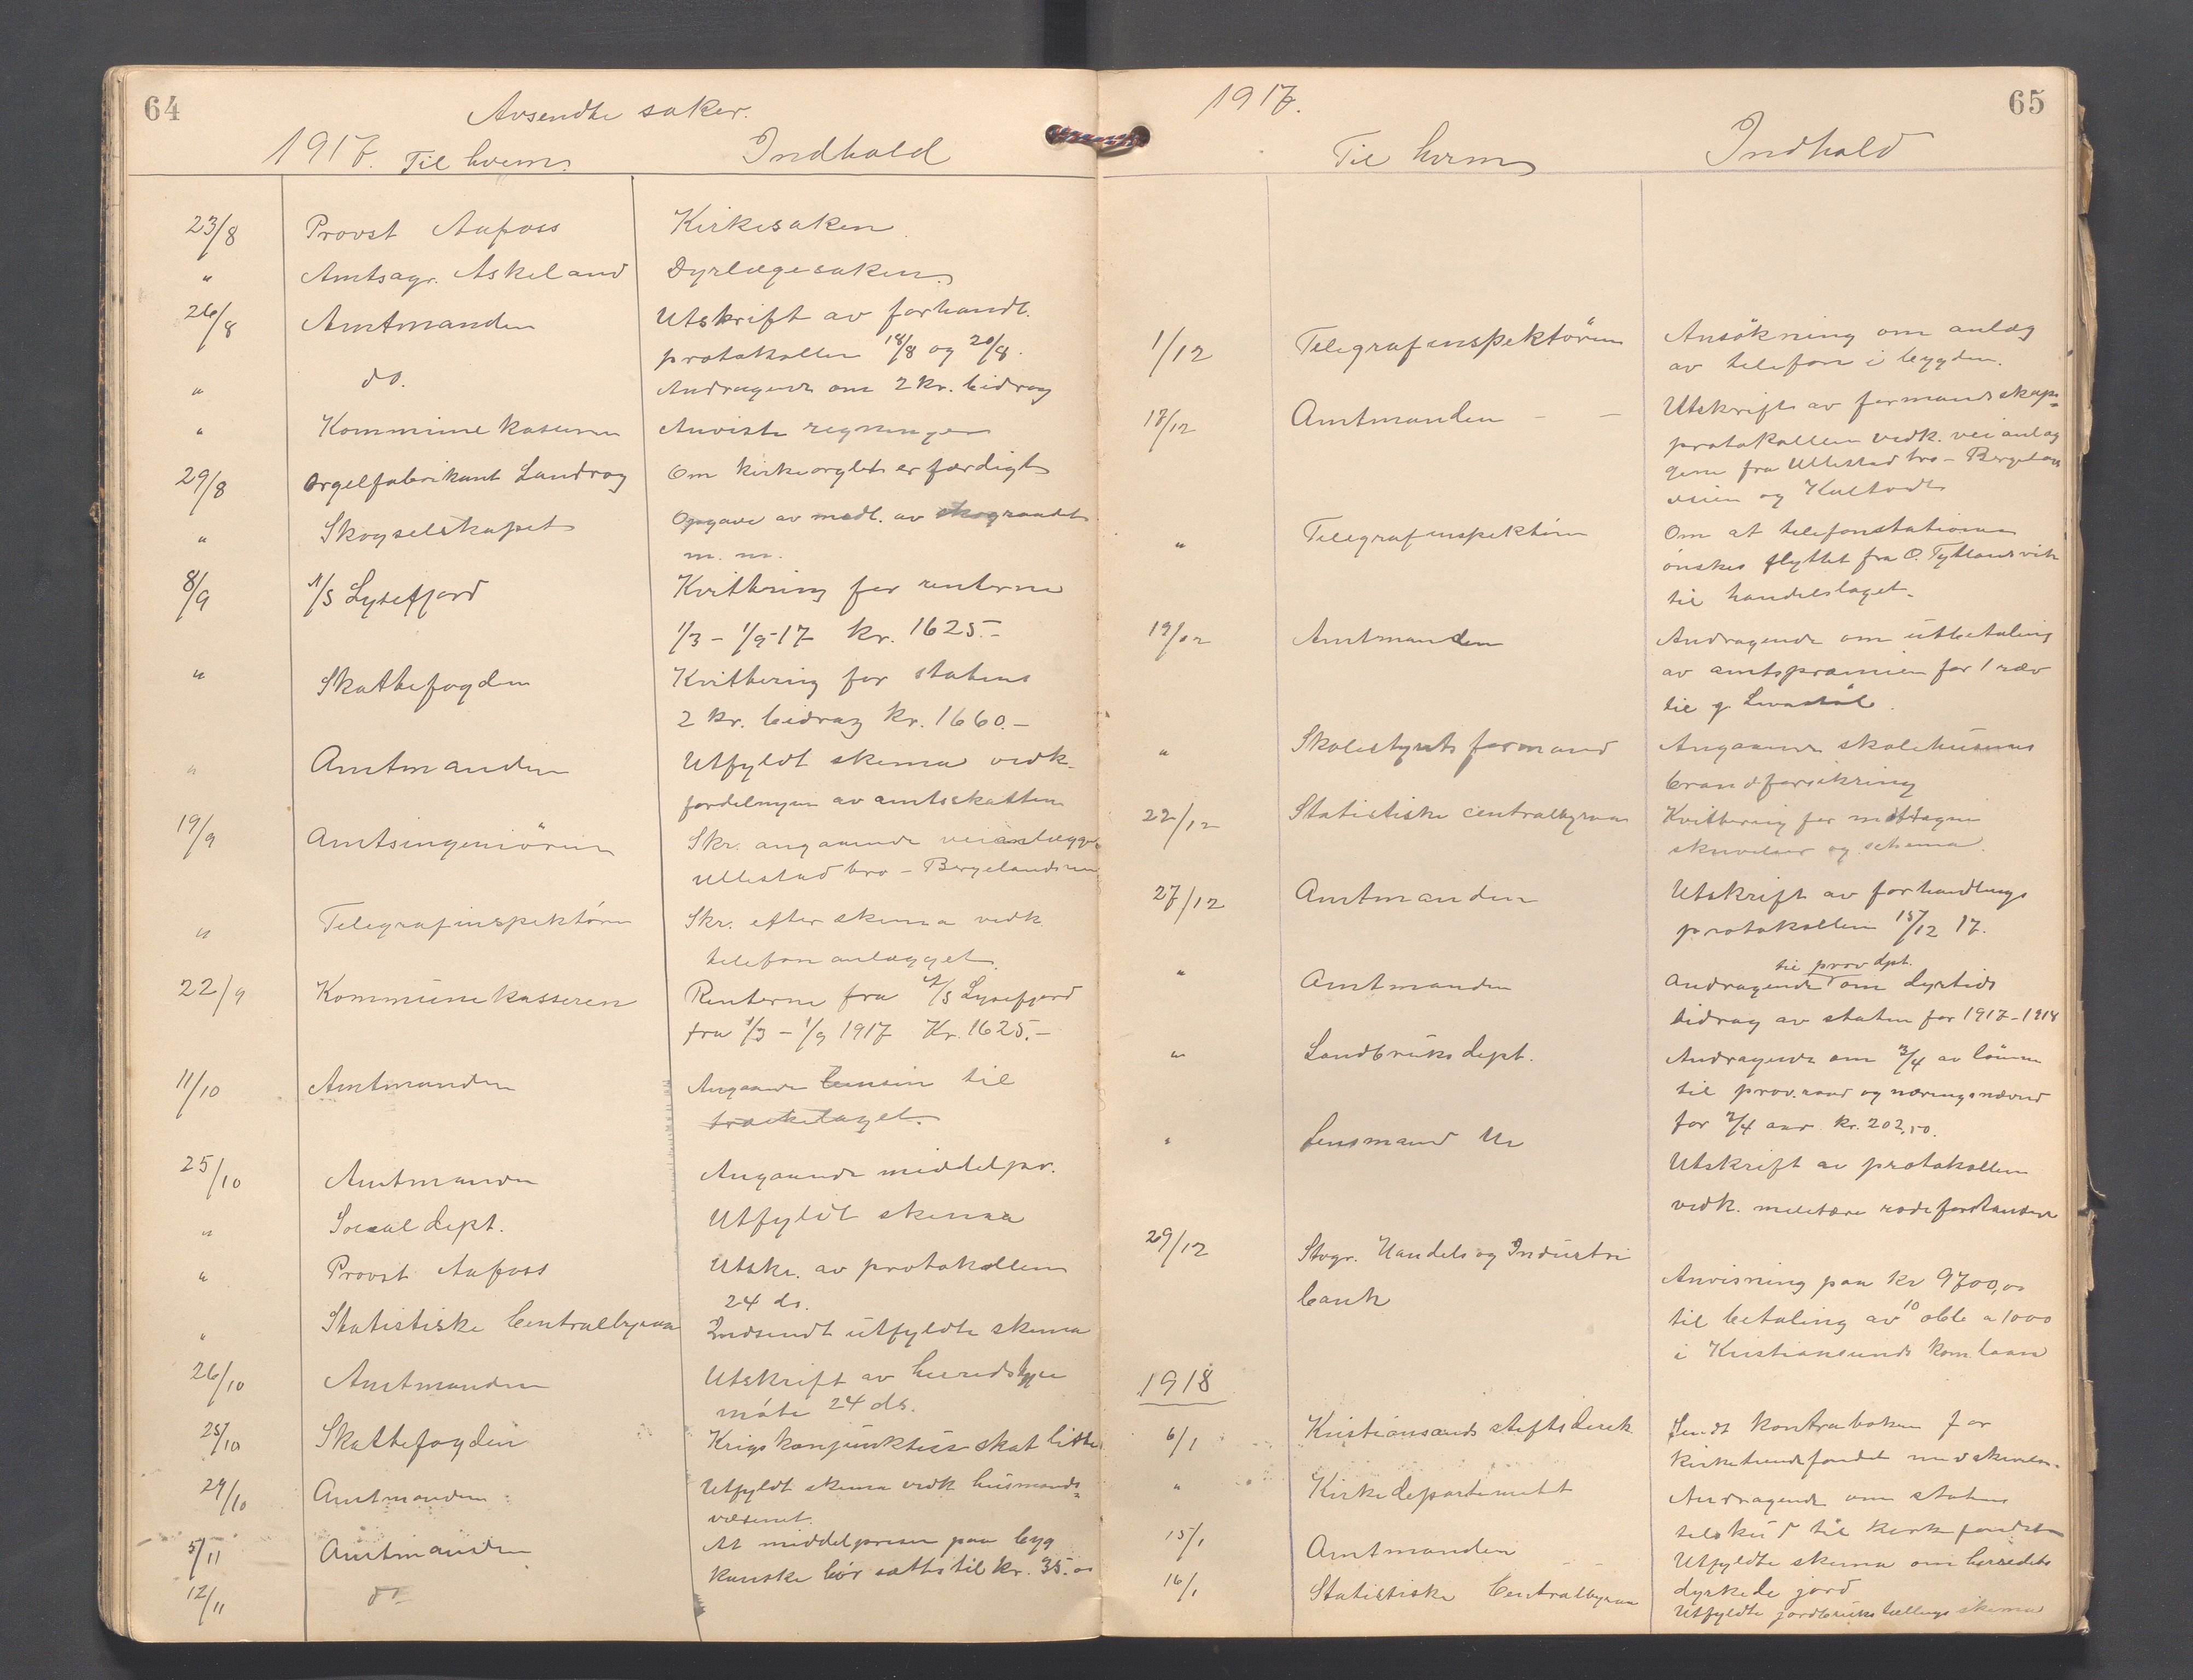 64
Avsendte saker.
1917. Til hvem. Indhold
23/8 Provst Aafoss Kirkesaken.
" Amtsagr. Askeland Dyrlægesaken.
26/8 Amtmanden Utskrift av forhandl.
protokollen 18/8 og 20/8.
" do. Andragende om 2 kr. bidrag
" Kommunekasseren Anviste regninger
29/8 Orgelfabrikant Landrog Om kirkeorglet er færdigt
" Skogselskapet Opgave av medl. av skograadet
m. m.
8/9 A/S Lysefjord Kvittering for renterne
1/3 - 1/9-17 kr. 1625.-
" Skattefogden Kvittering for statens
2 kr. bidrag kr. 1660.-
" Amtmanden Utfyldt skema vedk.
fordelingen av amtsskatten
19/9 Amtsingeniøren Skr. angaaende veianlægget
Ullestad bro - Bergelandsveien
" Telegrafinspektøren Skr. efter skema vedk.
telefonanlægget.
22/9 Kommunekasseren Renterne fra A/S Lysefjord
fra 1/3 - 1/9 1917 Kr. 1625.-
11/10 Amtmanden Angaaende bensin til
11/10 Amtmanden
25/10 Amtmanden Angaaende middelpr.
" Social dept. Utfyldt skema
" Provst Aafoss Utskr. av protokollen
24 ds.
" Statistiske Centralbyraa Indsendt utfyldte skema
26/10 Amtmanden Utskrift av herredstyre
møte 24 ds.
25/10 Skattefogden Krigskonjunkturskat liste
29/10 Amtmanden Utfyldt skema vedk husmands-
væsenet.
5/11 Amtmanden At middelprisen paa byg
kanske bør sættes til kr. 35.00
12/11 do
65
1917.
Til hvem Indhold
1/12 Telegrafinspektøren Ansøkning om anlæg
av telefon i bygden.
17/12 Amtmanden - - Utskrift av formandskaps-
protokollen vedk. veianlæg
gene fra Ullestad bro - Bergelands
veien og
" Telegrafinspektøren Om at telefonstationen
ønskes flyttet fra O. Tytlandsvik
til handelslaget.
19/12 Amtmanden Andragende om utbetaling
av amtspræmien for 1 ræv
til g.
" Skolestyrets formand Angaaende skolehusenes
brandforsikring
22/12 Statistiske centralbyraa Kvittering for mottagne
skrivelser og schema.
27/12 Amtmanden Utskrift av forhandlings
protokollen 15/12 17.
til prov dpt.
" Amtmanden Andragende om dyrtids
bidrag av staten for 1917-1918
" Landbruks dept. Andragende om 3/4 av lønnen
til prov. raad og næringsnævnd
for 2/4 aar kr. 202,50.
" Lensmand Ur Utskrift av protokollen
vedk. militære rodeforstandere
29/12 Stvgr. Handels og Industri
bank Anvisning paa kr 9700,00
til betaling av 10 obl. a 1000
i Kristiansunds kom. laan
1918
6/1 Kristiansands stiftsdirek. Sendt kontraboken for
kirketiendefondet med skrivelse.
" Kirkedepartementet Andragende om statens
tilskud til kirkefondet
15/1 Amtmanden Utfyldte skema om herredets
dyrkede jord
16/1 Statistiske Centralbyraa Utfyldte jordbrukstællings skema